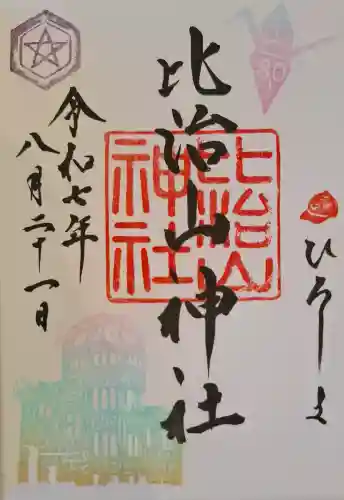 ひろしま
比治山神社
比治山
神社
令和七年
八月二十一日